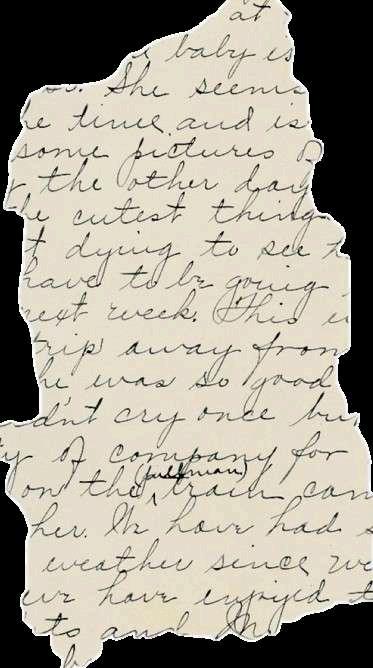 at
baby is
She seems
he time and is
some pictures of
the other day
he cutest thing
t dying to see h
have to be going
next week. This i
trip away from
he was so good
dn't cry once bu
ty of company for
(pullman)
on the train can
her. We have had s
weather since we
we have enjoyed t
ts and M